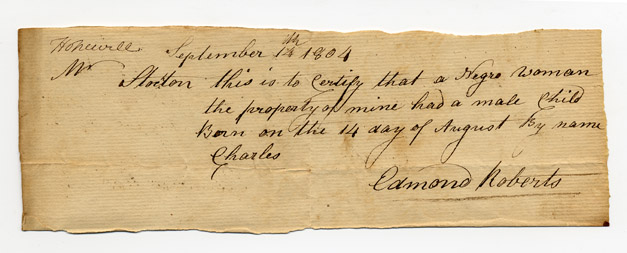 Hopewell September 14th 1804
Mr Stocton this is to Certify that a Negro woman
the property of mine had a male Child
Born on the 14 day of August By name
Charles
Edmond Roberts